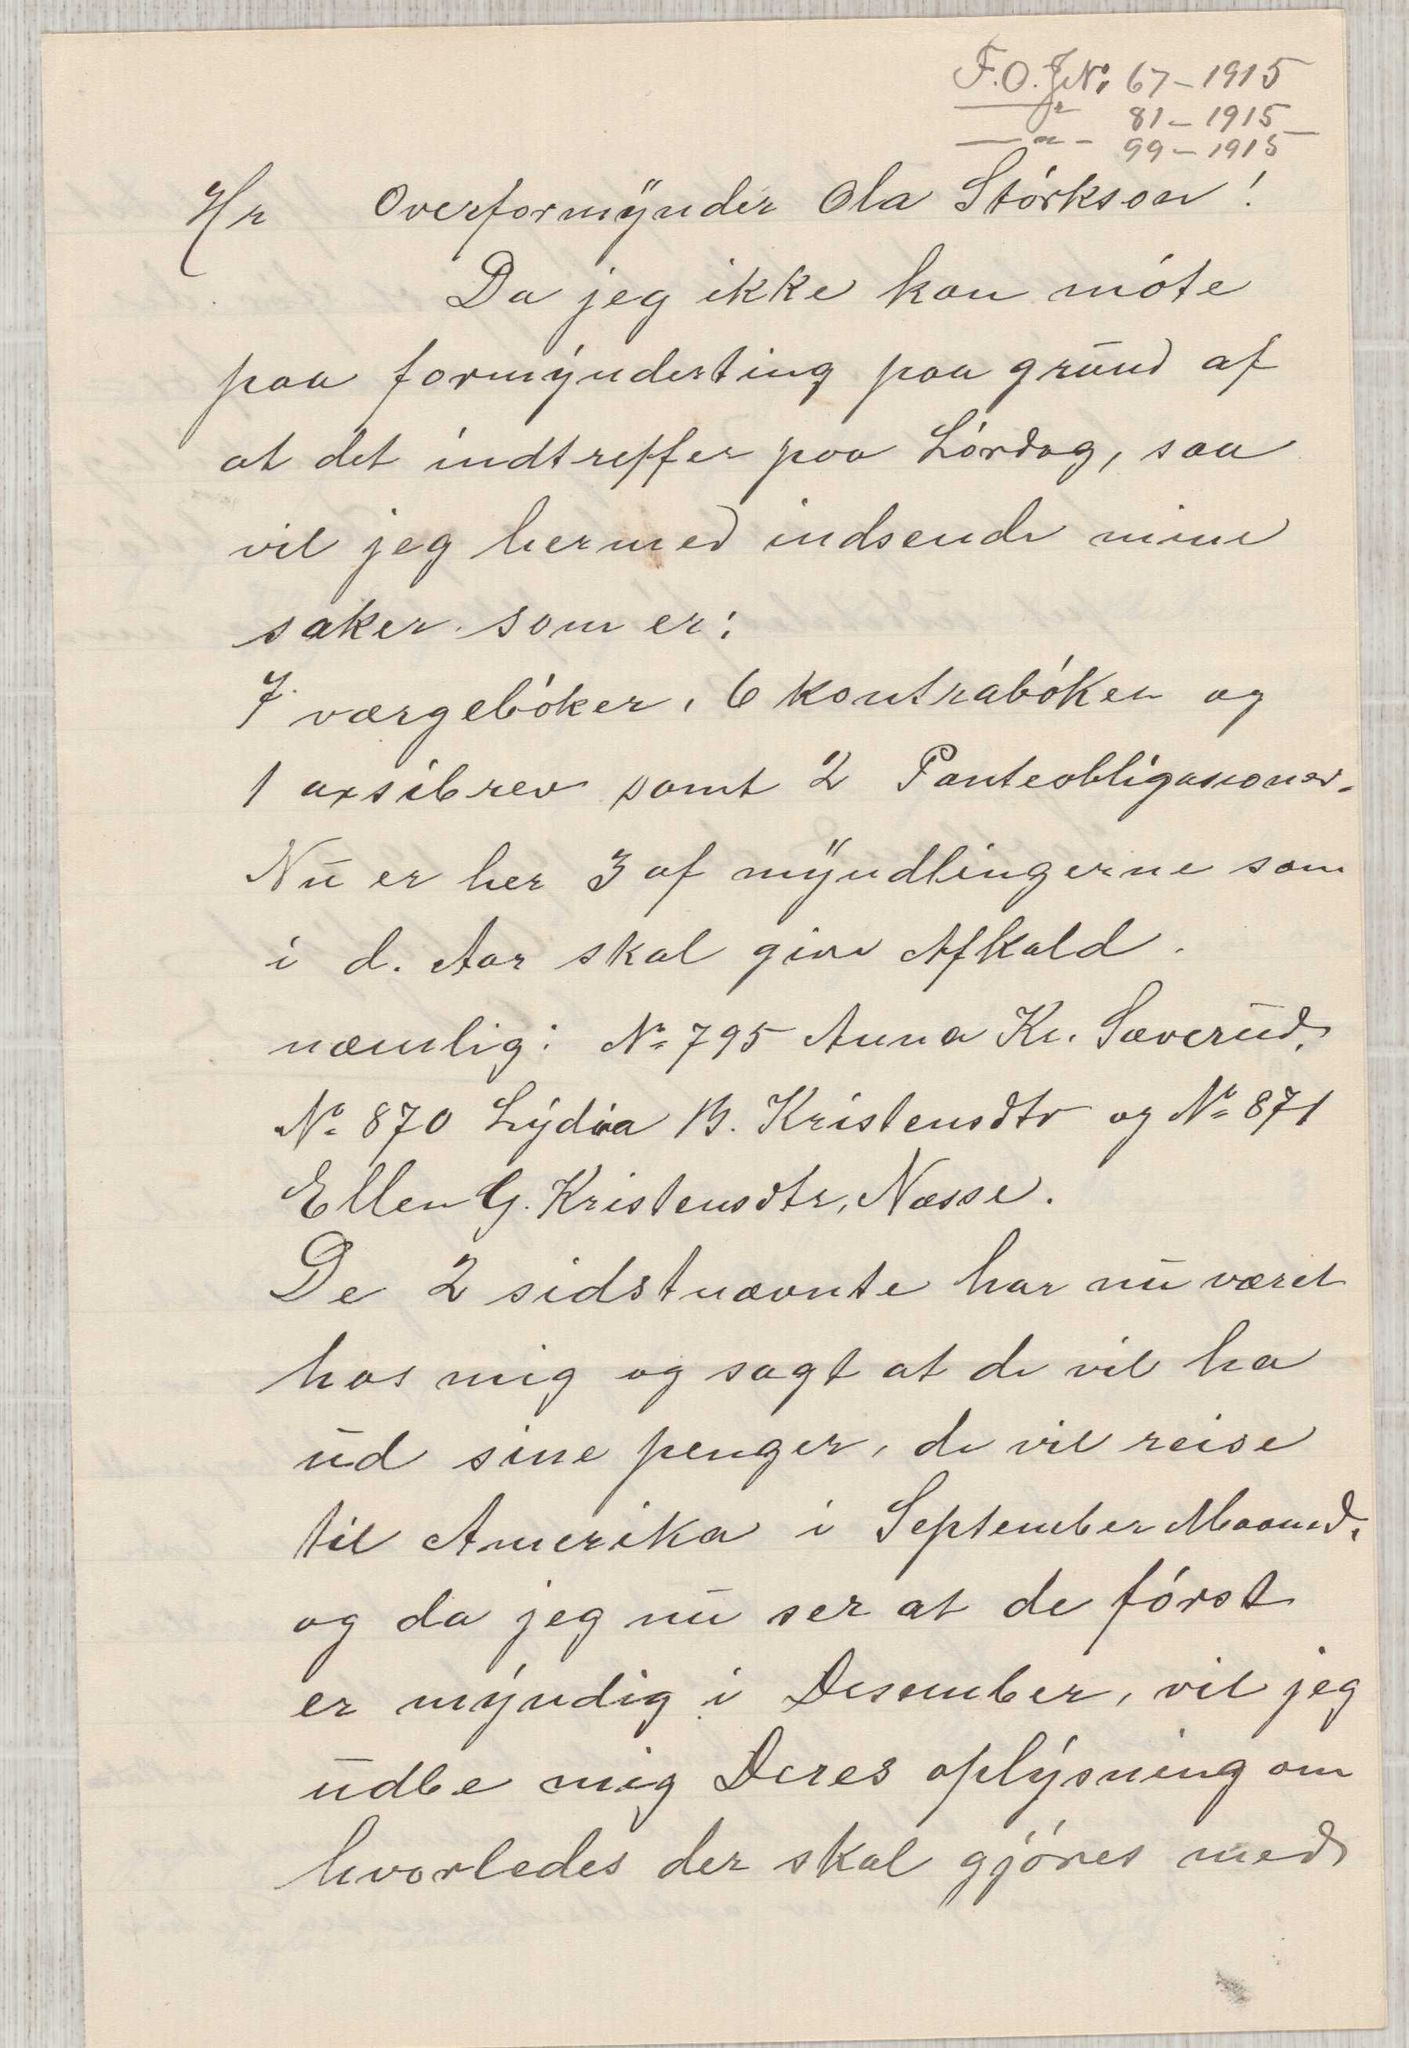 F.O.J.Nr 67 - 1915
— " — 81 - 1915
— " — 99 - 1915
Hr Overformynder Ola Störkson!
Da jeg ikke kan möte
paa formynderting paa grund af
at det indtreffer paa Lördag, saa
vil jeg hermed indsende mine
saker som er:
7 værgeböker, 6 kontraböker og
1 axsibrev samt 2 Panteobligasioner.
Nu er her 3 af myndlingerne som
i d. Aar skal give Afkald.
næmlig: No 795 Anna Kr. Sæverud,
No 870 Lydia B. Kristensdtr og No 871
Ellen G. Kristensdtr, Næsse.
De 2 sidstnævnte har nu været
hos mig og sagt at de vil ha
ud sine penger, de vil reise
til Amerika i September Maaned,
og da jeg nu ser at de först
er myndig i Desember, vil jeg
udbe mig Deres oplysning om
hvorledes der skal gjöres med